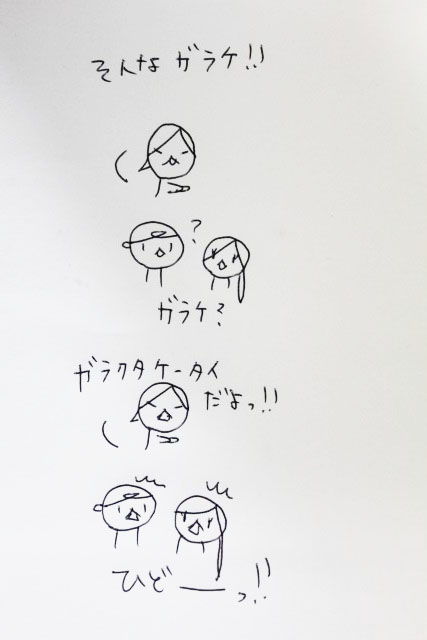 そんな ガラケ!!
?
ガラケ?
ガラクタケータイ
だよっ!!
ひどーっ!!